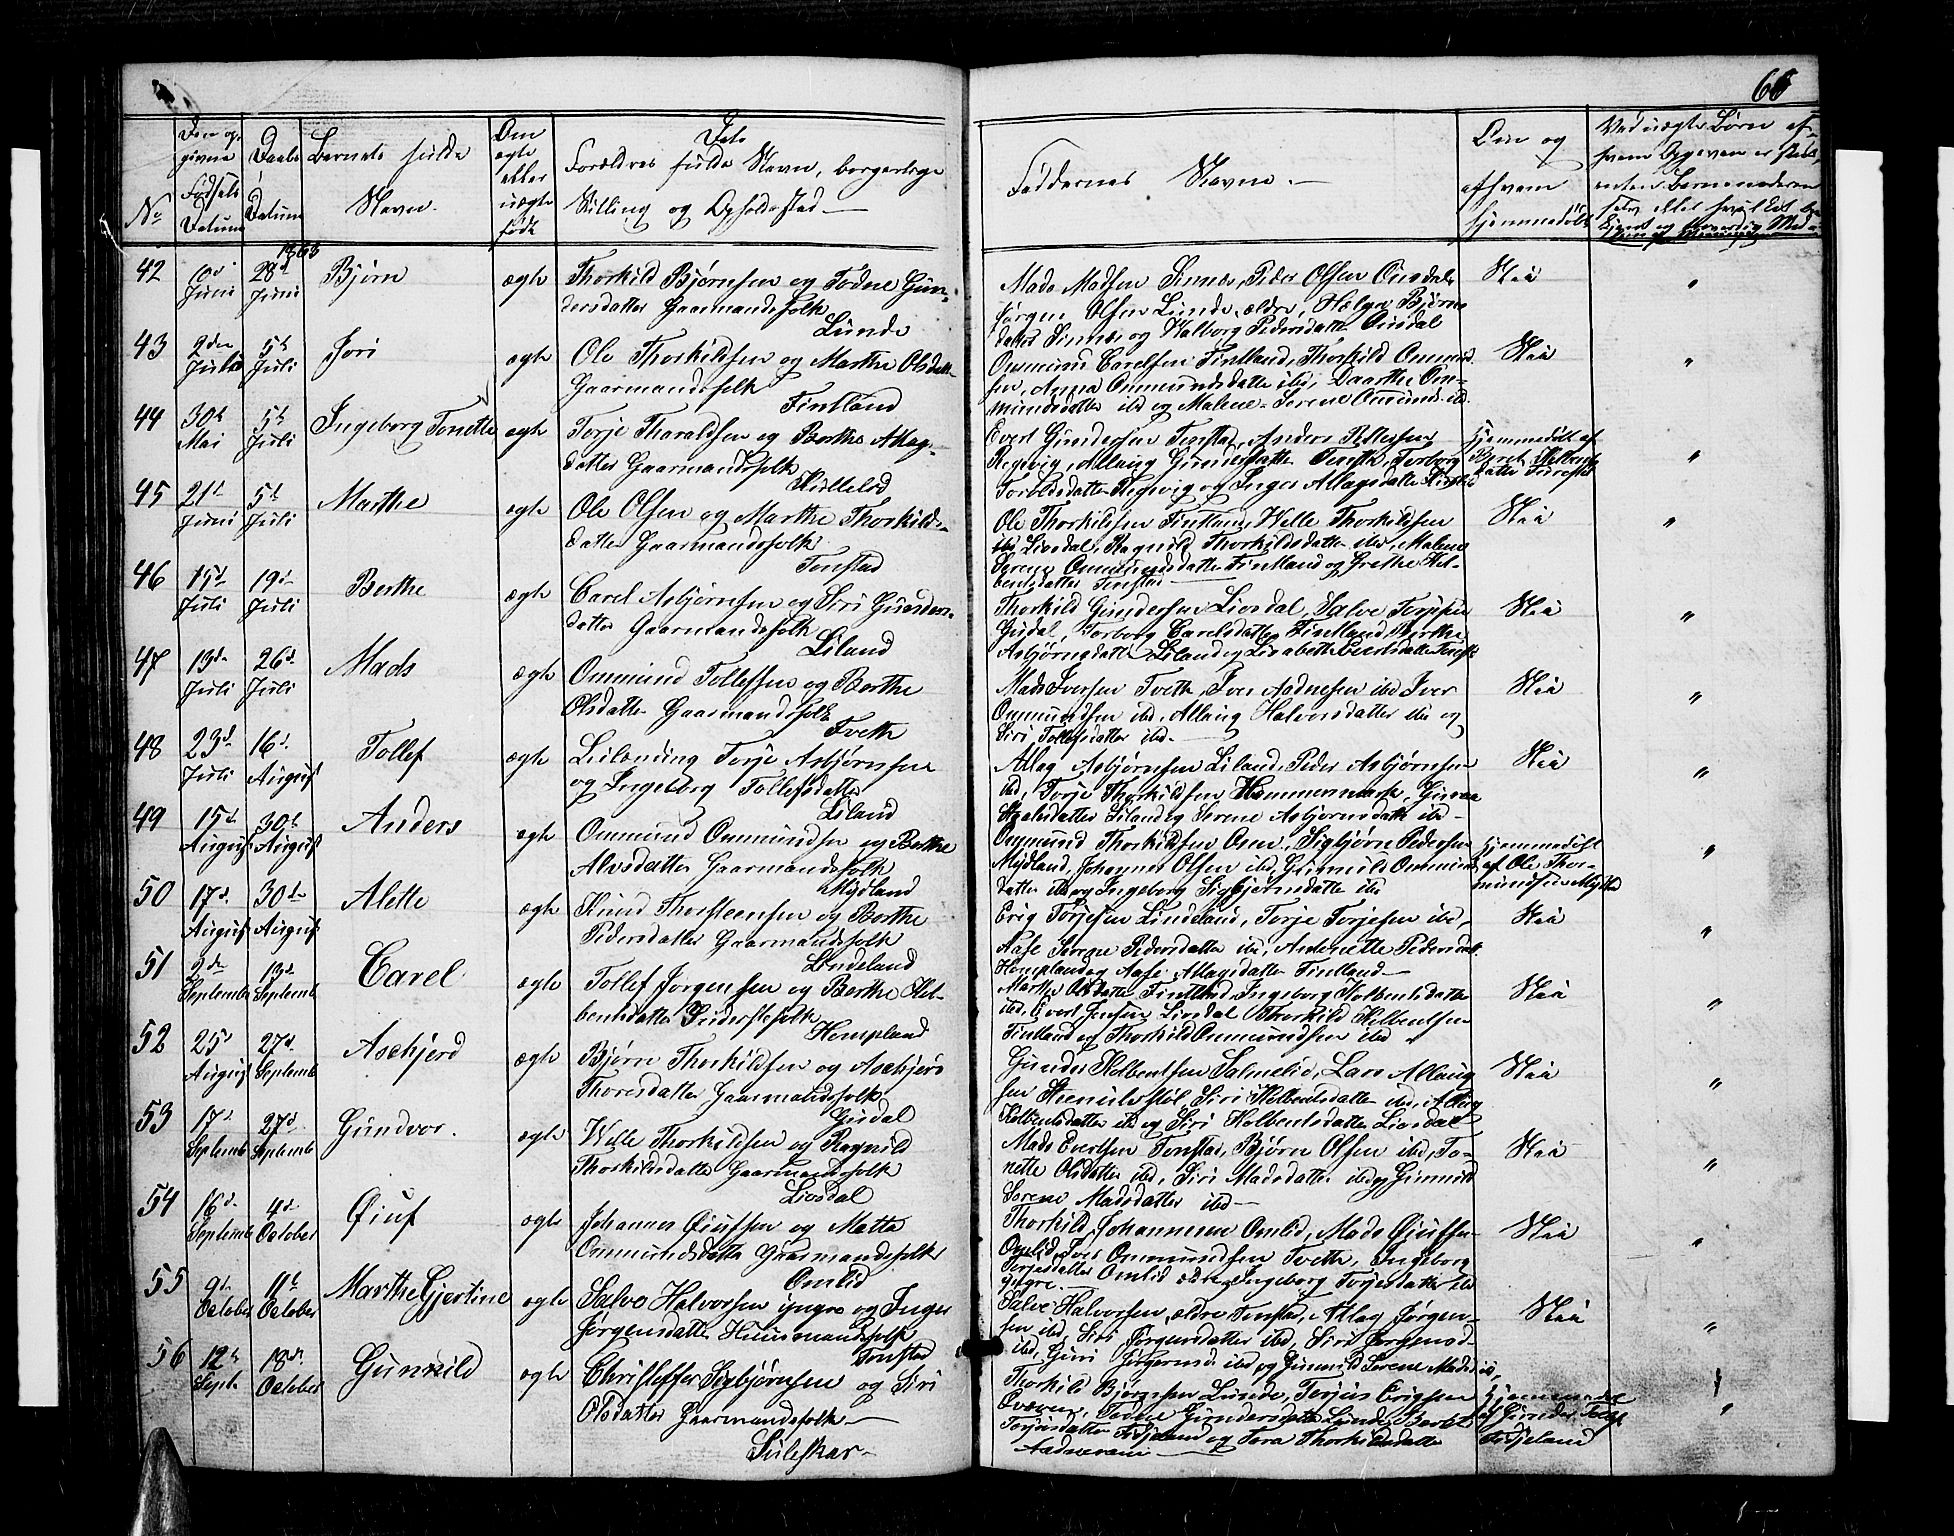 66
No
Den op-
givne
Fødsels
Datum
Daabs
Datum
Barnets fulde
Navn.
Om
ægte
eller
uægte
født
Dets
Forældres fulde Navn, borgerlige
Stilling og Opholdssted —
Faddernes Navne. —
Om og
afhvem
hjemmedøbt
Ved uægte Børn af-
enten Barnemoderen
1863
42
6d
Juni
28d
Juni
Bjørn
ægte
Thorkild Bjørnsen og Todne Gun-
dersdatter Gaarmandsfolk
Lunde
Mads Madsen Sinnes, Peder Olsen Ousdal
Jørgen Olsen Lunde ældre, Helga Bjørns
datter Sinnes og Valborg Pedersdatter Ousdal
Nei
"
43
2den
Juli
5t
Juli
Jori
ægte
Ole Thorkildsen og Marthe Olsdatter
Gaarmandsfolk
Fintland
Ommund Carelsen Fintland, Thorkild Ommund
sen, Anna Ommundsdatter ibd, Daarthe Om-
mundsdatter ibd og Malene Serene Omunds ibd.
Nei
"
44
30t
Mai
5t
Juli
Ingeborg Tonette
ægte
Torje Tharaldsen og Berthe Atlag-
datter Gaarmandsfolk
Evert Gundersen Tonstad, Anders
Gundersdatter Torborg
Toroldsdatter og Inger Atlagsdatter
Hjemmedøbt af
Beret
datter
"
45
21t
Juni
5t
Juli
Marthe
ægte
Ole Olsen og Marthe Thorkilds-
datter Gaarmandsfolk
Tonstad
Ole Thorkildsen Fintland, Velle Thorkildsen
Liosdal, Ragnild Thorkildsdatter ibd, Malene
Serene Ommundsdatter Fintland og Grethe Hol-
bentsdatter Tonstad —
Nei
"
46
15d
Juli
19d
Juli
Berthe
ægte
Carel Asbjørnsen og Siri Gunders-
datter Gaarmandsfolk
Liland
Thorkild Gundersen Liosdal, Salve Torjesen
Gusdal, Torborg Carelsdatter Fintland, Berthe
Asbjørnsdatter Liland og Lisabeth Evertsdatter
Nei
"
47
13de
Juli
26d
Juli
Mads
ægte
Ommund Tollefsen og Berthe
Olsdatter Gaarmandsfolk
Tveth
Mads Iversen Tveth, Iver Aadnesen ibd Iver
Ommundsen ibd, Allaug Halvorsdatter ibd og
Siri Tollefsdatter ibd. —
Nei
"
48
23d
Juli
16d
August
Tollef
ægte
Torje Asbjørnsen
og Ingeborg Tollefsdatter
Liland
Atlag Asbjørnsen Liland, Peder Asbjørnsen
ibd, Torje Thorkildsen Hammermark, Gunna
Liland og Serene Asbjørnsdatter ibd —
Nei
"
49
15d
August
30t
August
Anders
ægte
Ommund Ommundsen og Berthe
Alvsdatter Gaarmandsfolk
Mydland
Ommund Thorkildsen Omer, Sigbjørn Pedersen
Mydland, Johannes Olsen ibd, Gunnild Ommunds
datter ibd og Ingeborg Sigbjørnsdatter ibd
Hjemmedøbt
af Ole Thor-
mundsen Mydland
"
50
17d
August
30te
August
Alette
ægte
Knud Thorsteensen og Berthe
Pedersdatter Gaarmandsfolk
Lindeland
Erig Torjesen Lindeland, Torje Torjesen ibd,
Aase Serene Pedersdatter ibd, Andrnette Pedersdatt
Hompland og Aase Atlagsdatter Fintland —
Nei
"
51
2de
Septemb
13d
Septemb
Carel
ægte
Tollef Jørgensen og Berthe Hol-
bentsdatter
Hompland
Marthe Olsdatter Fintland Ingeborg Holbentsdatter
ibd, Evert Jensen Liosdal Thorkild Holbentsen
Fintland og Thorkild Ommundsen ibd
Nei
"
52
25d
August
27d
Septemb
Asebjørd
ægte
Bjørn Thorkildsen og Asebjørd
Thoresdatter Gaarmandsfolk
Gusdal
Gunder Holbentsen Salmelid, Lars Allaug
sen Siri Holbentsdatter ibd,
Holbentsdatter ibd og Siri Holbentsdatter Liosdal
Nei
"
53
17d
Septemb
27d
Septemb
Gundvor.
ægte
Velle Thorkildsen og Ragnild
Thorkildsdatter Gaarmandsfolk
Liosdal
Mads Evertsen Tonstad, Bjørn Olsen ibd, To-
nette Olsdatter ibd, Siri Madsdatter ibd og Gunnild
Serene Madsdatter ibd —
Nei
"
54
16d
Septemb
4d
October
Øiuf
ægte
Johannes Øiufsen og Mette
Ommundsdatter Gaarmandsfolk
Omlid
Thorkild Johannesen Omlid, Mads Øiufsen
Omlid, Iver Ommundsen Tveth, Ingeborg
Torjesdatter Omlid ældre, Ingeborg Torjesdatter ibd
yngre —
Nei
"
55
9t
October
11t
October
Marthe Gjertine
ægte
Salve Halvorsen yngre og Inger
Jørgensdatter Huusmandsfolk
Tonstad
Salve Halvorsen ældre Tonstad, Atlag Jørgen-
sen ibd, Siri Jørgensdatter ibd, Siri Jørgensd-
ibd, Guri Jørgensd. ibd og Gunnild Serene Madsd ibd,
Nei
"
56
12t
Sept.
18de
October
Gunnild
ægte
Christeffer Sigbjørnsen og Siri
Olsdatter Gaarmandsfolk —
Suleskar —
Thorkild Bjørnsen Lunde, Torjus Erigsen
Qvæven, Todne Gundersdatter Lunde,
Torjusdatter Fidjeland og Tora Thorkildsdatter
Aadneram —
Hjemmedøbt
af Gunder
Fidjeland
"